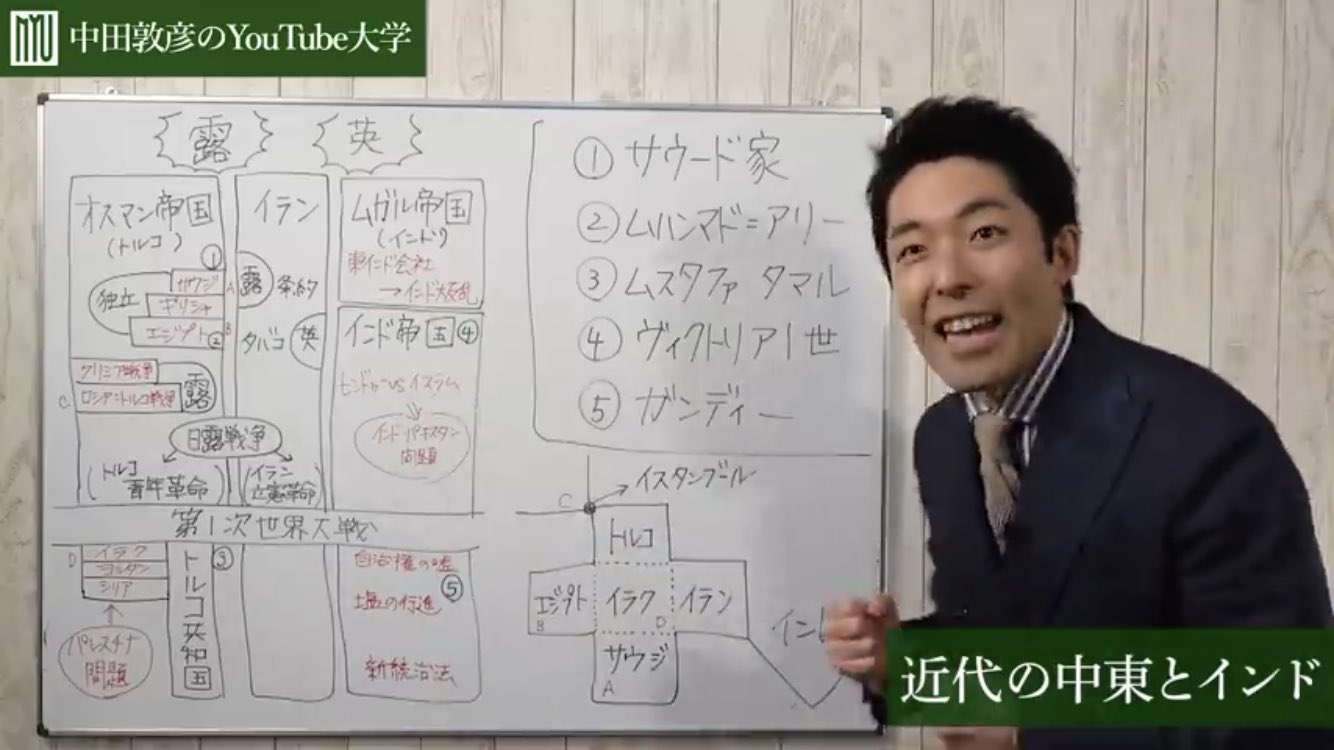 中田敦彦のYouTube大学
露
英
オスマン帝国
(トルコ)
①
サウジ
独立
ギリシャ
エジプト②
クリミア戦争
ロシア=トルコ戦争
露
C
イラン
A
露 条約
B
タバコ 英
ムガル帝国
(インド)
東インド会社
→インド大反乱
インド帝国④
ヒンドゥーvsイスラム
インド・パキスタン
問題
日露戦争
(トルコ
青年革命)
(イラン
立憲革命)
第1次世界大戦
D
イラク
ヨルダン
シリア
パレスチナ
問題
トルコ共和国
③
自治権の嘘
塩の行進
⑤
新統治法
①サウード家
②ムハンマド=アリー
③ムスタファ タマル
④ヴィクトリア1世
⑤ガンディー
C
イスタンブール
トルコ
エジプト
B
イラク
D
イラン
サウジ
A
イン
近代の中東とインド